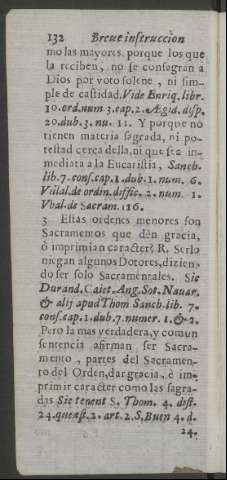 132 Breue instruccion
mo las mayores, porque los que
la reciben, no se consagran a
Dios por voto solene, ni sim-
ple de castidad. Vide Enriq. libr.
10. ord. num 3. cap. 2. Ægid. disp.
20. dub. 3. nu. 11. Y porque no
tienen materia sagrada, ni po-
testad cerca della, ni que sea in-
mediata a la Eucaristia, Sanch.
lib. 7. conf. cap. 1. dub. 1. num. 6.
Villal. de ordin. diffic. 2. num. 1.
Vbal. de Sacram. 126.
3 Estas ordenes menores son
Sacramentos que den gracia,
ò imprimian caracter? R. Serlo
niegan algunos Dotores, dizien-
do ser solo Sacramentales. Sic
Durand. Caiet. Ang. Sot. Nauar.
& alij apud Thom Sanch. lib. 7.
conf. cap. 1. dub. 7. numer. 1. & 2.
Pero la mas verdadera, y comun
sentencia afirman ser Sacra-
mento, partes del Sacramen-
to del Orden, dar gracia, è im-
primir caracter como las sagra-
das Sic tenent S. Thom. 4. dist.
24. quæst. 2. art. 2. S. Buen 4. d.
24.